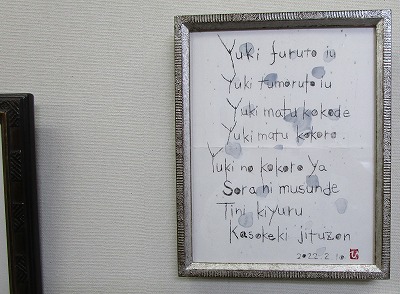 Yuki furuto iu
Yuki tumoruto iu
Yuki matu kokode
Yuki matu kokoro
Yuki no kokoro ya
Sora ni musunde
Tini kiyuru
Kasokeki jituzon
2022.2.10